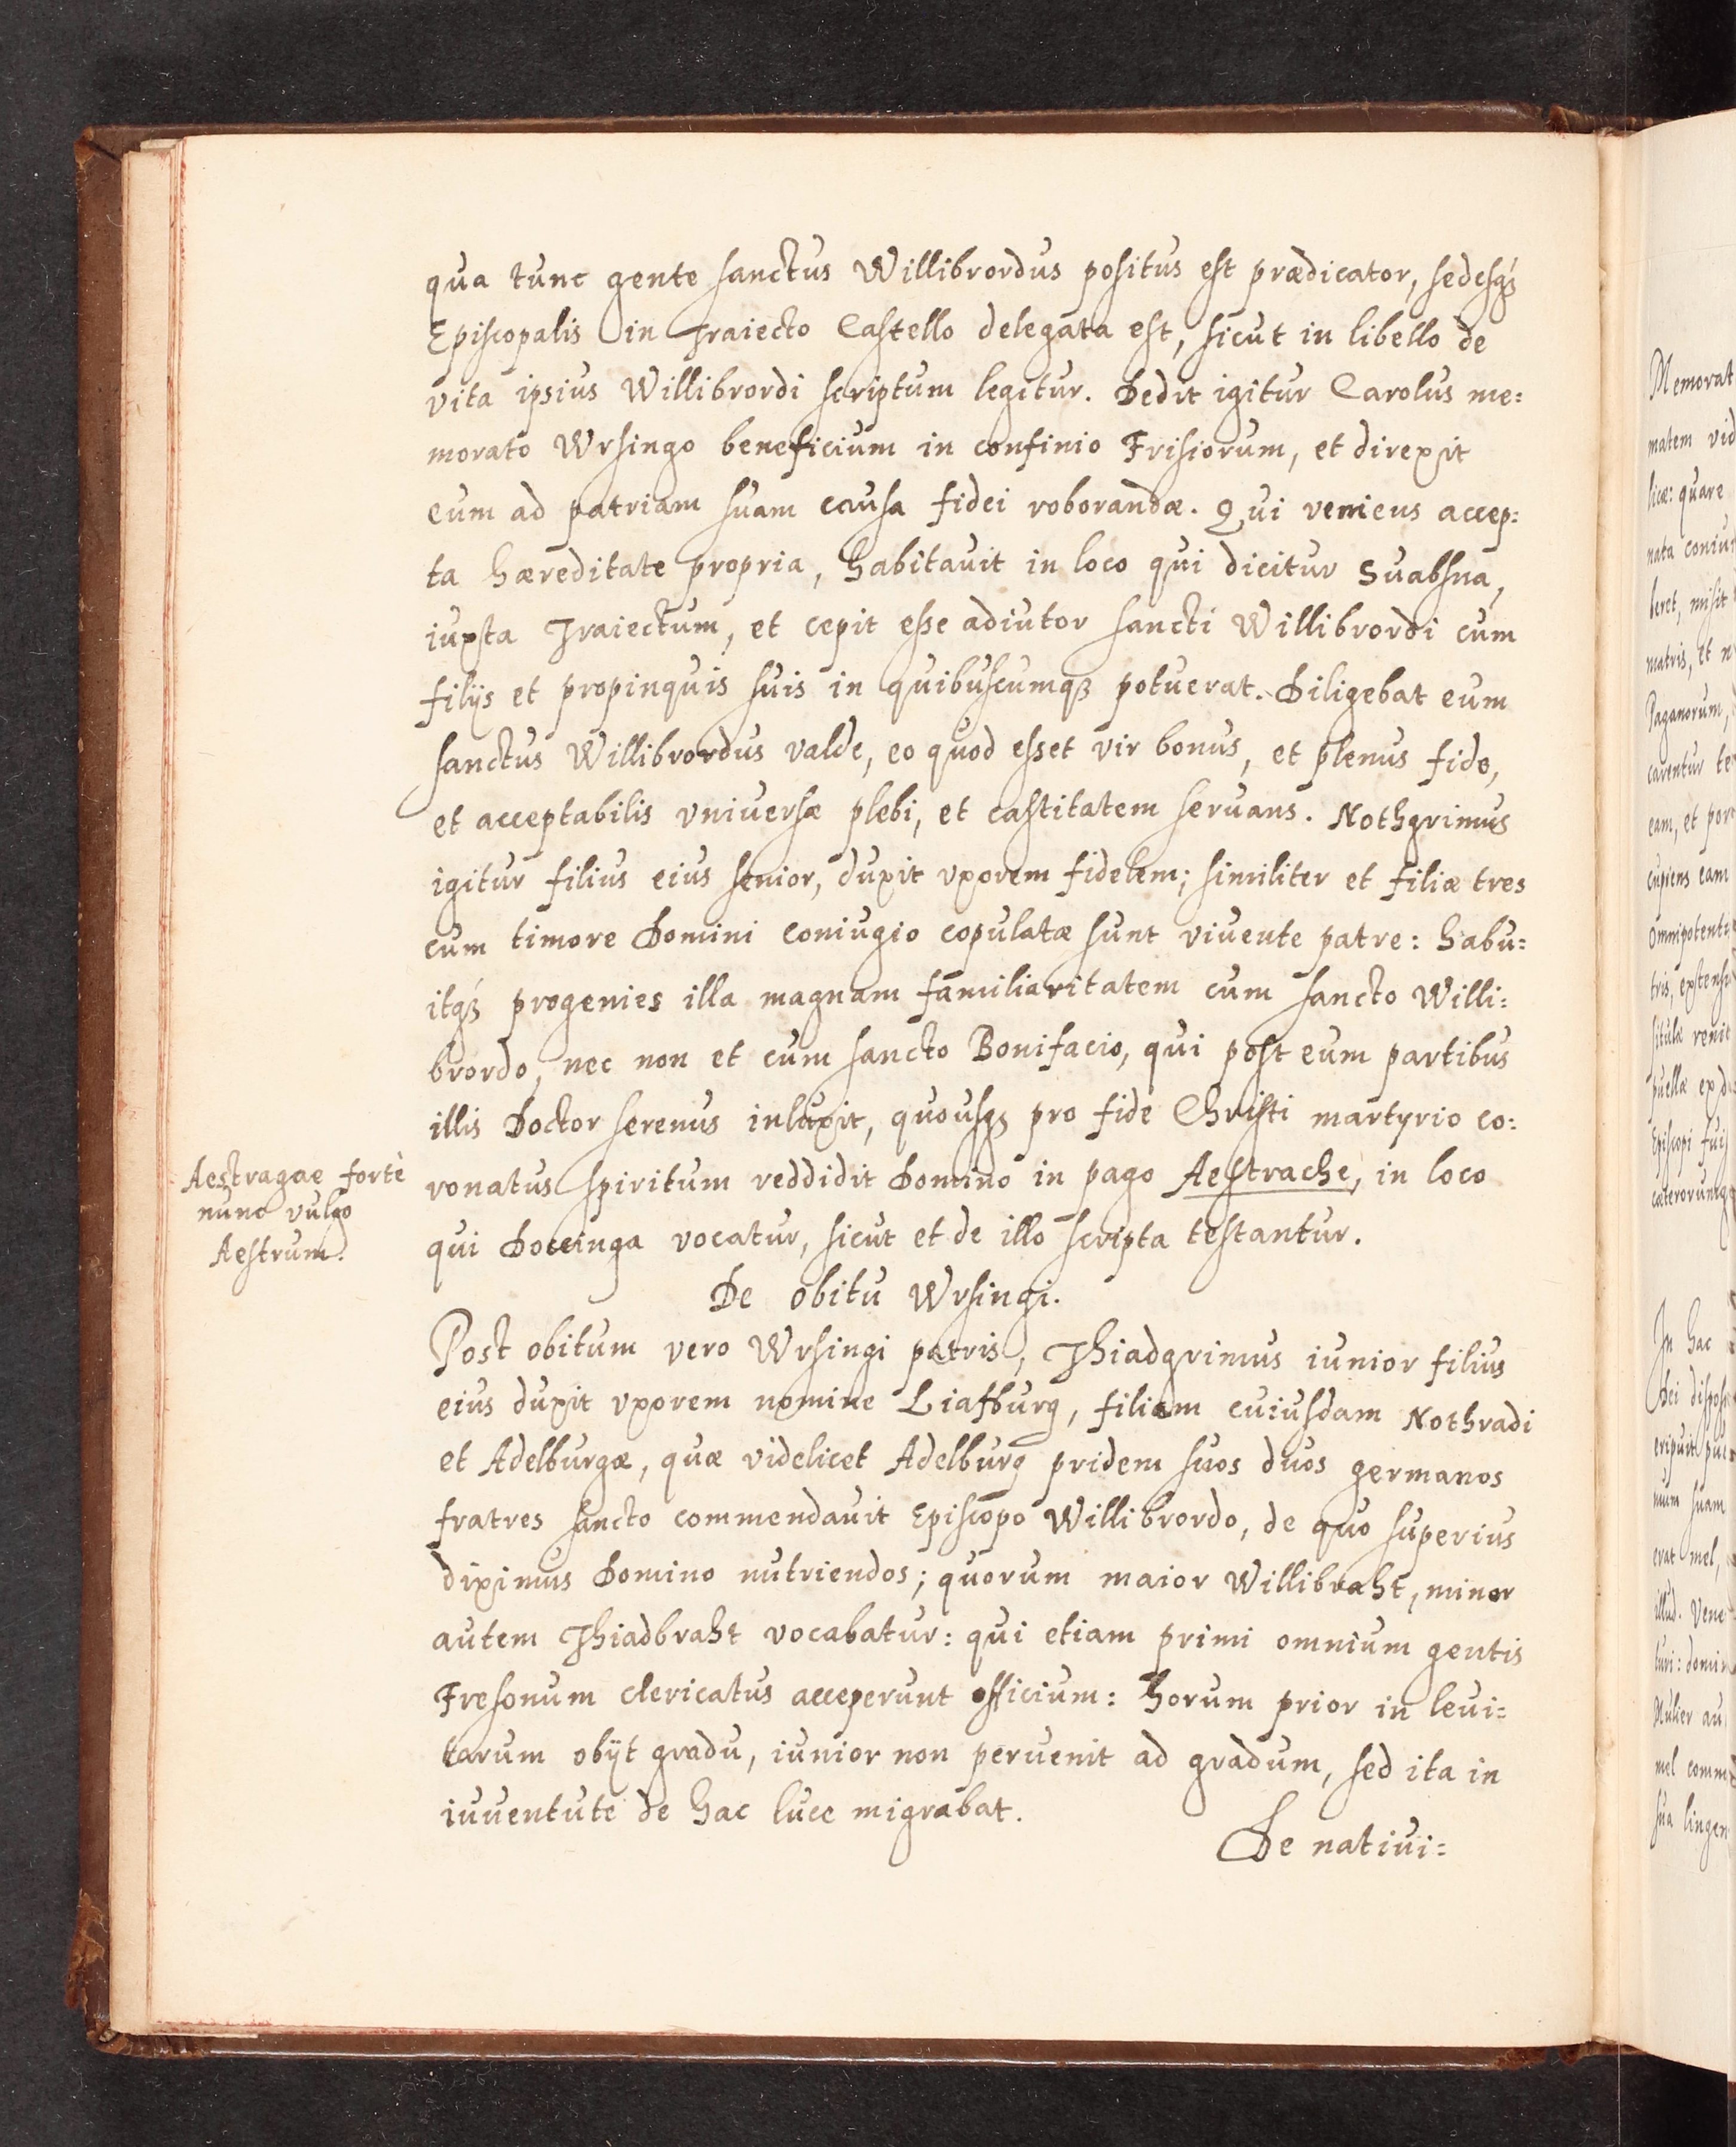 qua tunc gente sanctus Willibrordus positus est prædicator, sedesq́ꝫ
Episcopalis in Traiecto Castello delegata est, sicut in libello de
vita ipsius Willibrordi scriptum legitur. Dedit igitur Carolus me=
morato Wrsingo beneficium in confinio Frisiorum, et direxit
eum ad patriam suam causa fidei roborandæ. Qui veniens accep=
ta hæreditate propria, habitauit in loco qui dicitur Suabsna,
iuxta Traiectum, et cepit esse adiutor sancti Willibrordi cum
filijs et propinquis suis in quibuscumqꝫ potuerat. Diligebat eum
sanctus Willibrordus valde, eo quod esset vir bonus, et plenus fide,
et acceptabilis vniuersæ plebi, et castitatem seruans. Nothgrimus
igitur filius eius senior, duxit vxorem fidelem; similiter et filiæ tres
cum timore Domini coniugio copulatæ sunt viuente patre: habu=
itq́ꝫ progenies illa magnam familiaritatem cum sancto Willi=
brordo, nec non et cum sancto Bonifacio, qui post eum partibus
illis Doctor serenus inluxit, quousqꝫ pro fide Christi martyrio co=
ronatus spiritum reddidit Domino in pago Aestrache, in loco
qui Doccinga vocatur, sicut et de illo scripta testantur.
Aestragae fortè
nunc vulgo
Aestrum.
De obitu Wrsingi.
Post obitum vero Wrsingi patris, Thiadgrimus iunior filius
eius duxit vxorem nomine Liafburg, filiam cuiusdam Nothradi
et Adelburgæ, quæ videlicet Adelburg pridem suos duos germanos
fratres sancto commendauit Episcopo Willibrordo, de quo superius
diximus Domino nutriendos; quorum maior Willibraht, minor
autem Thiadbraht vocabatur: qui etiam primi omnium gentis
Fresonum clericatus acceperunt officium: horum prior in leui=
tarum obijt gradu, iunior non peruenit ad gradum, sed ita in
iuuentute de hac luce migrabat.
De natiui=
Memorat
matem vid
licæ: quare
nata coniu
leret, misit
matris, et n
Paganorum,
carentur te
eam, et por
cupiens eam
Omnipotent
tris, extens
situlæ venit
puellæ ex d
Episcopi fui
cæterorumq
In hac
Dei dispos
eripuit pue
num suam
erat mel,
illud. Vene
turi: domin
Mulier au
mel comm
sua lingen